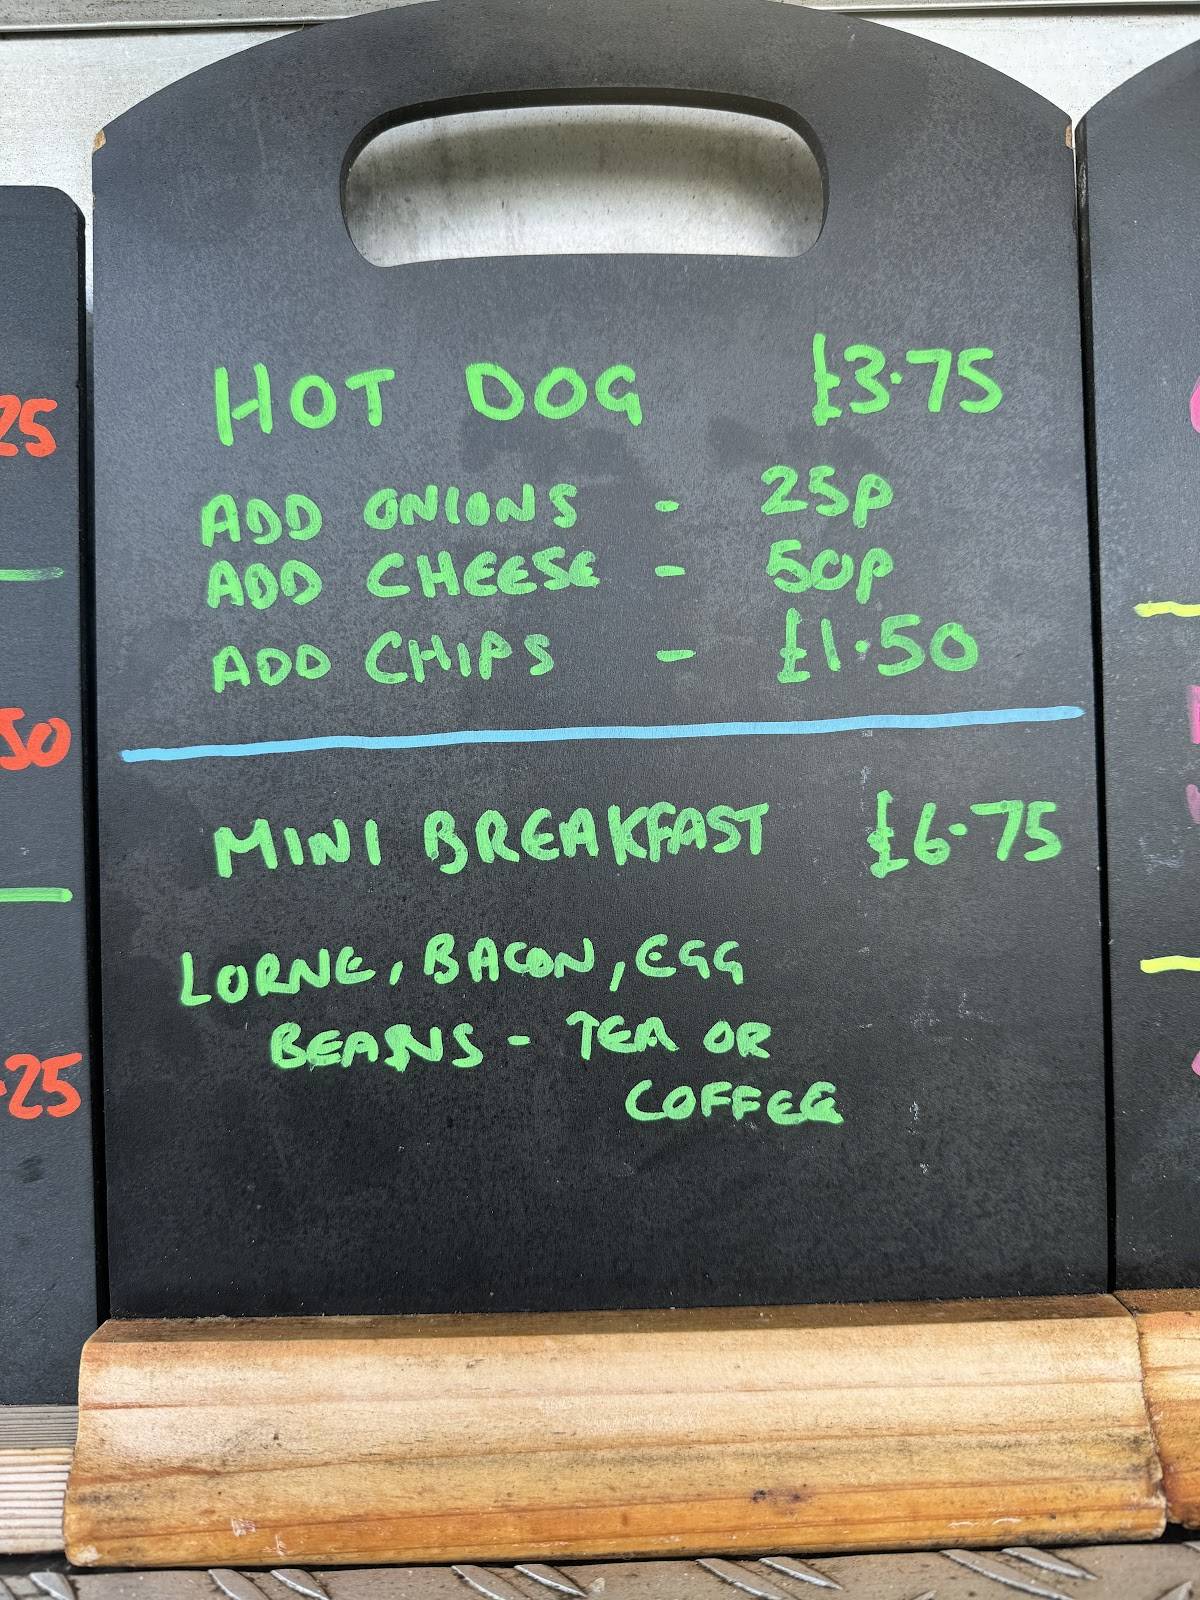 HOT DOG £3.75
ADD ONIONS - 25p
ADD CHEESE - 50p
ADD CHIPS - £1.50
MINI BREAKFAST £6.75
LORNE, BACON, EGG
BEANS - TEA OR
COFFEE
25
50
.25